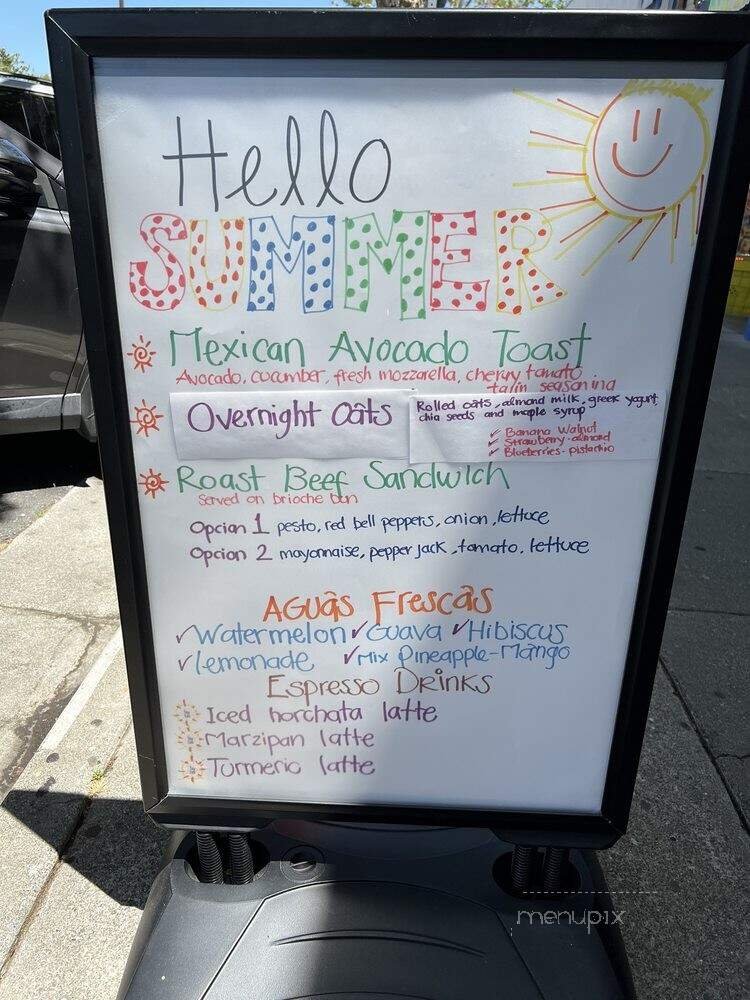 Hello
SUMMER
Mexican Avocado Toast
Avocado, cucumber, fresh mozzarella, cherry tomato
tajin seasoning
Overnight Oats
Rolled oats, almond milk, greek yogurt,
chia seeds and maple syrup
✓ Banana Walnut
✓ Strawberry-almond
✓ Blueberries-pistachio
Roast Beef Sandwich
Served on brioche bun
Opcion 1 pesto, red bell peppers, onion, lettuce
Opcion 2 mayonnaise, pepper jack, tomato, lettuce
AGUAS FRESCAS
✓ Watermelon ✓ Guava ✓ Hibiscus
✓ Lemonade ✓ Mix Pineapple-Mango
Espresso Drinks
Iced horchata latte
Marzipan latte
Turmeric latte
menupix